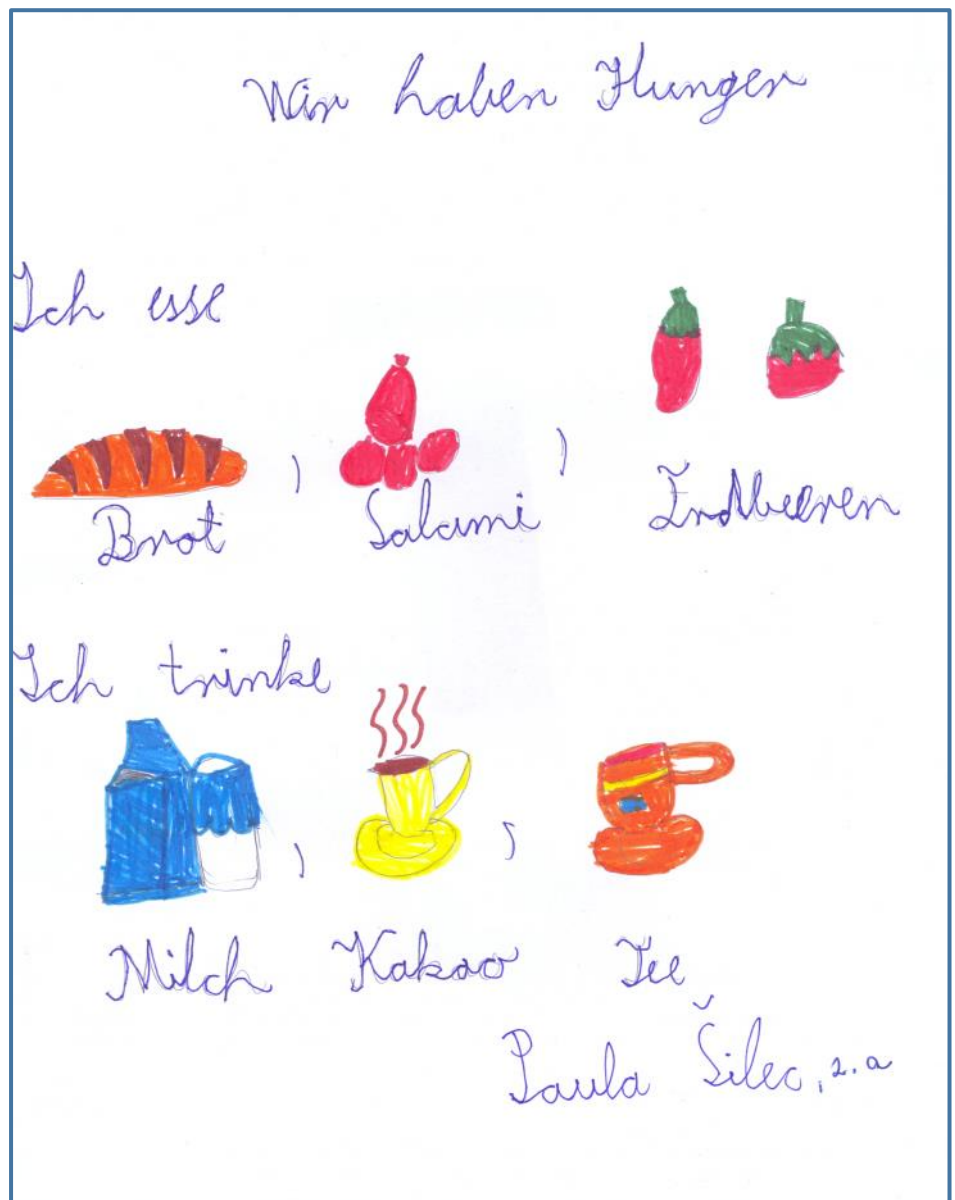 Wir haben Hunger
Ich esse
, ,
Brot Salami Erdbeeren
Ich trinke
, ,
Milch Kakao Tee
Paula Šilec, 2.a